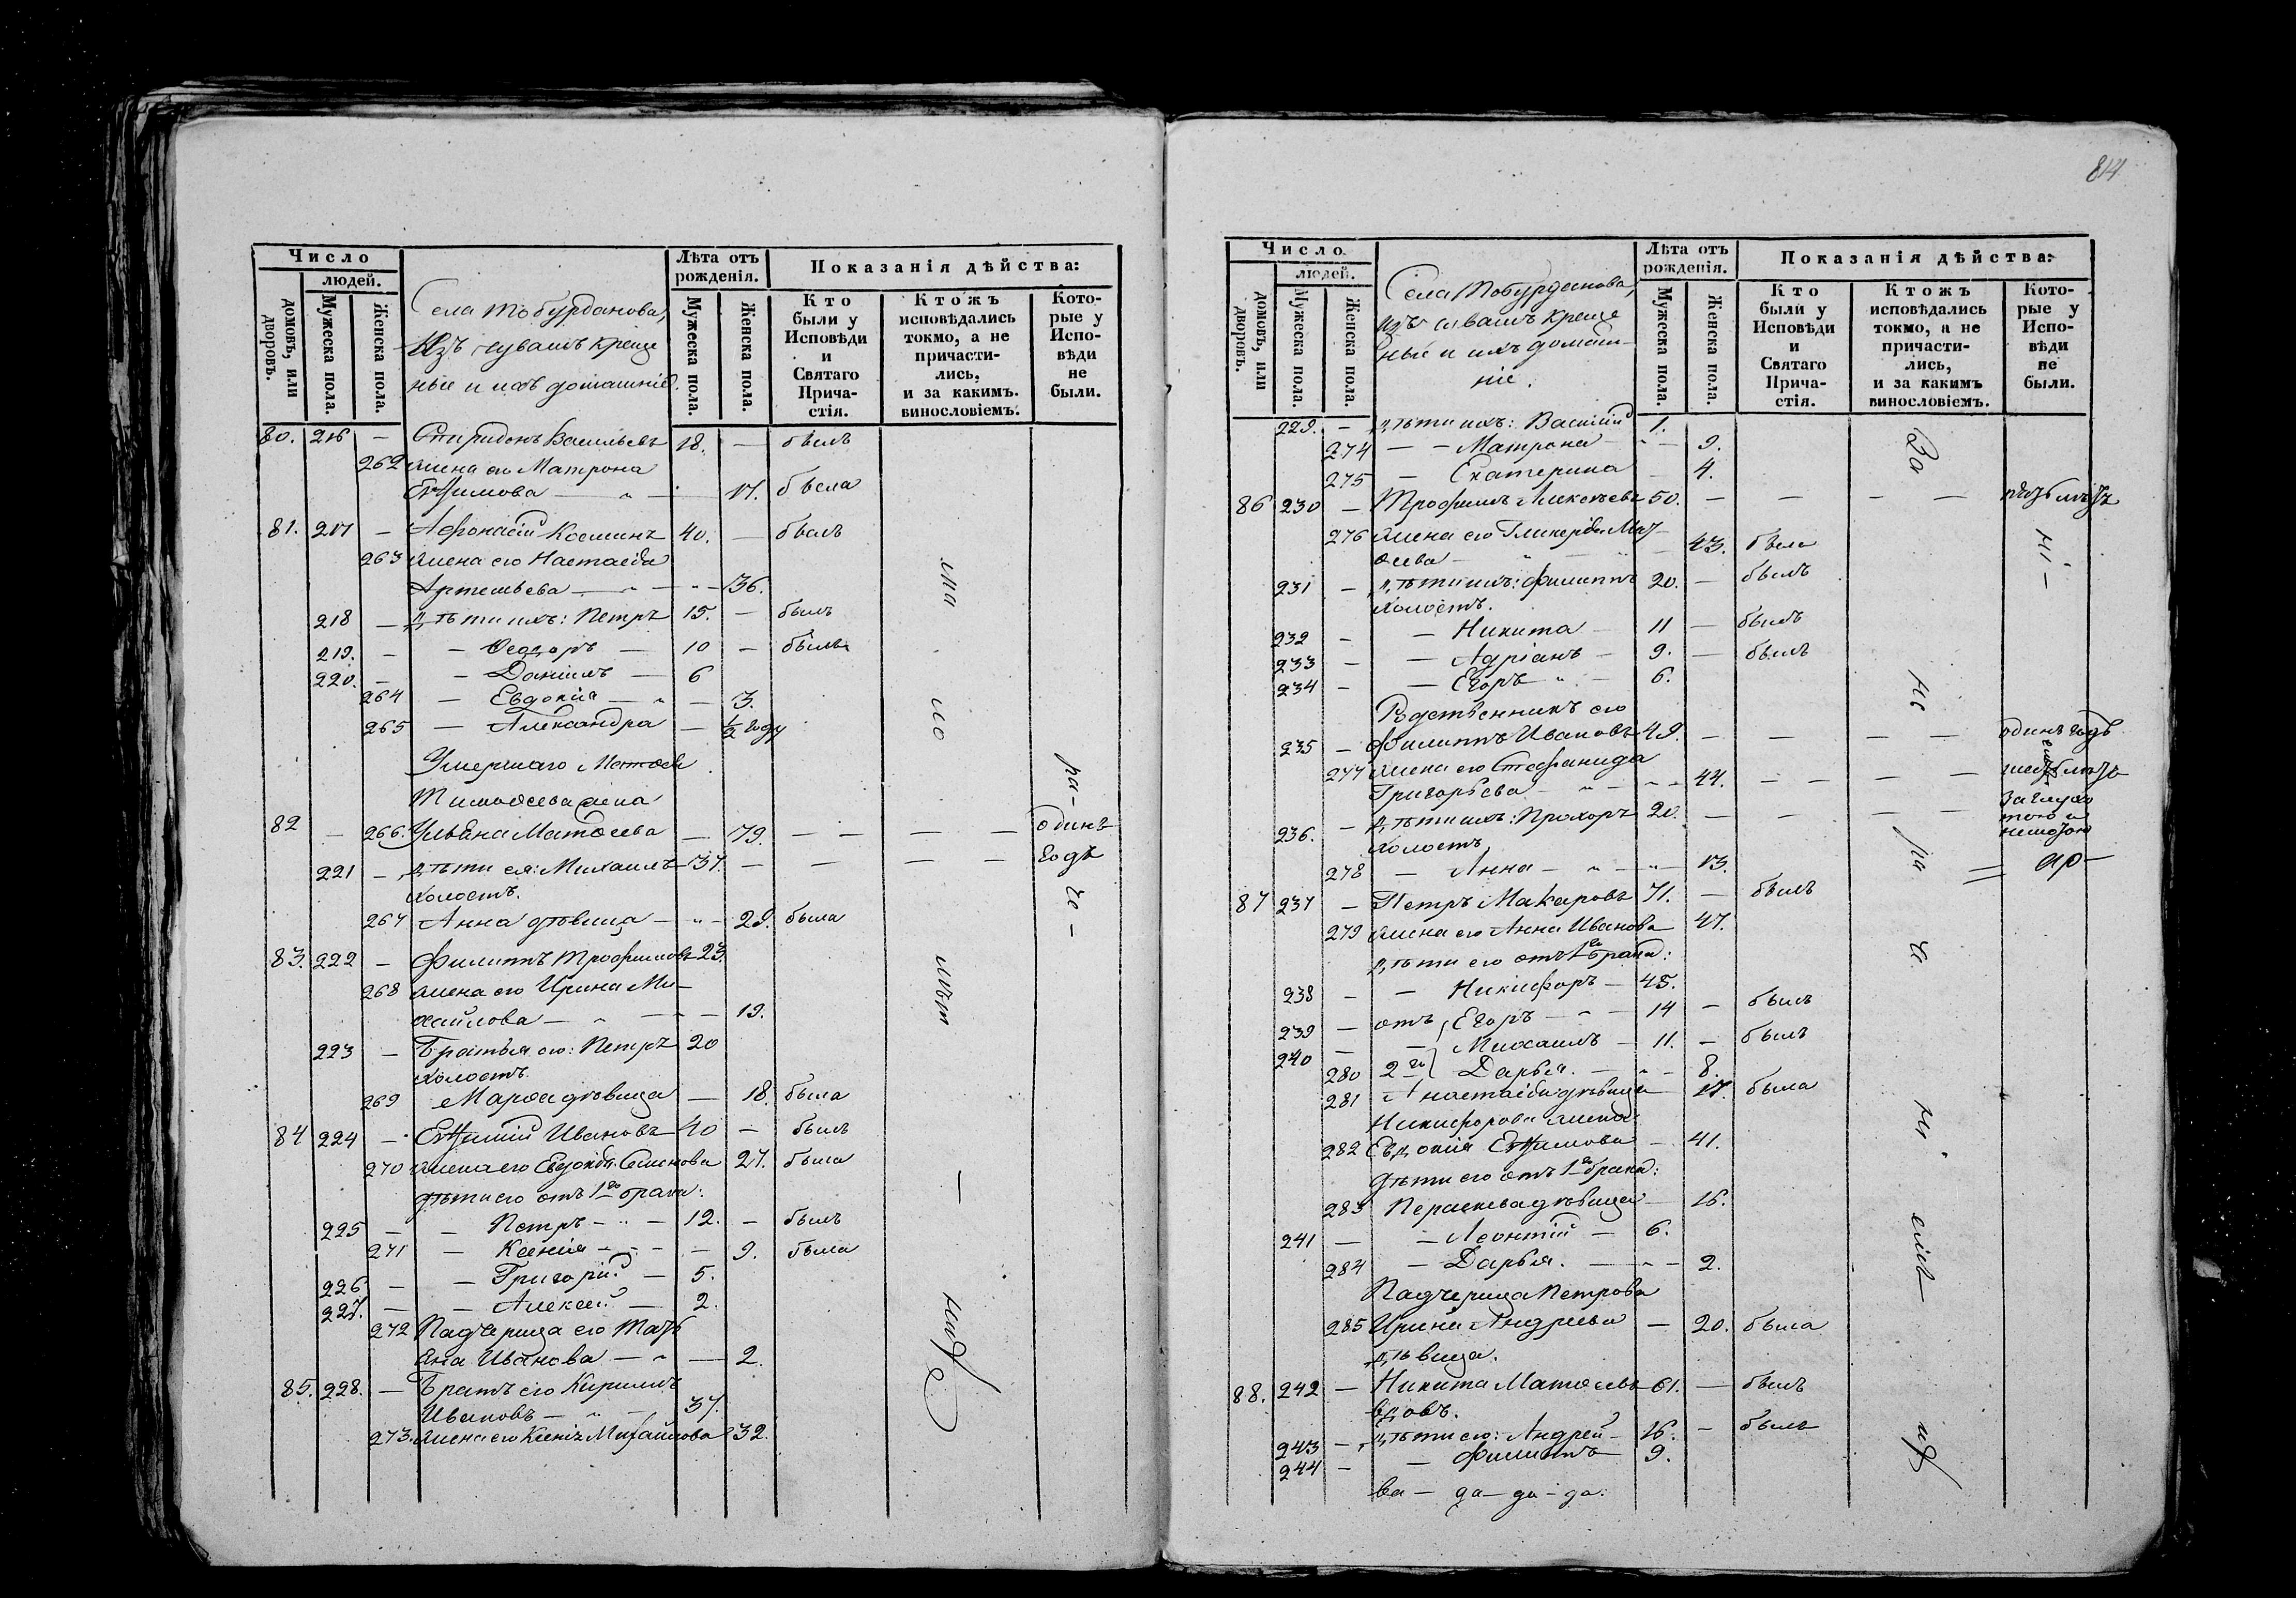 Число
людей.
домовъ, или дворовъ.
Мужеска пола.
Женска пола.
Села Тобурданова,
Изъ чувашъ креще
ные и ихъ домашніе.
Лѣта отъ рожденія.
Мужеска пола.
Женска пола.
Показанія дѣйства:
Кто были у Исповѣди и Святаго Прича-стія.
Ктожъ исповѣдались токмо, а не причасти-лись, и за какимъ винословіемъ.
Кото-рые у Испо-вѣди не были.
80. 216 — Спиридонъ Васильевъ 18. — былъ
262 жена его Матрона
Евѳимова — " — 17. была
81. 217 — Аѳонасій Косминъ 40. — былъ
263 жена его Настасія
Артемьева — " — 36.
218 — дѣти ихъ: Петръ 15. — былъ
219. — — Ѳеодоръ — 10 — былъ
220. — — Даніилъ — 6
264 — Евдокія — " — 3.
265 — Александра — ½ году
Умершаго Матѳея
Тимоѳеева жена
82 — 266. Ульяна Матѳеева — 79. — — — — одинъ
221 — дѣти ея: Михаилъ 37. — — — — годъ
холостъ.
267 Анна дѣвица — " — 29. была
83. 222 — Филиппъ Трофимовъ 23.
268 жена его Ирина Ми-
хайлова — " — — 19.
223 — Братья его: Петръ 20
холостъ.
269 Марѳа дѣвица — 18. была
84 224 — Евѳимій Ивановъ 40 — былъ
270 жена его Евдокія Семенова 27. была
дѣти его отъ 1го брака:
225 — — Петръ — " — 12. — былъ
271 — Ксенія — — — 9. была
226 — — Григорій — 5.
227. — — Алексей — 2.
272 Падчерица его Тать
яна Иванова — " — 2.
85. 228. — Братъ его Кириллъ
Ивановъ — " — 37.
273. жена его Ксенія Михайлова 32.
ма
ло
лѣт
—
ра-
че-
814
Число.
людей.
домовъ, или дворовъ.
Мужеска пола.
Женска пола.
Села Тобурданова,
изъ чувашъ креще
ные и ихъ домаш-
ніе.
Лѣта отъ рожденія.
Мужеска пола.
Женска пола.
Показанія дѣйства:
Кто были у Исповѣди и Святаго Прича-стія.
Ктожъ исповѣдались токмо, а не причасти-лись, и за какимъ винословіемъ.
Кото-рые у Испо-вѣди не были.
229. — дѣти ихъ: Василій 1.
274 — — Матрона — " — 9.
275 — Екатерина — 4.
86 230 — Трофимъ Алексѣевъ 50. — — — —
276 жена его Гликерія Мат-
ѳеева — " — 43. была
231 — дѣти ихъ: Филиппъ 20. — былъ
холостъ.
232 — — Никита — 11 — былъ
233 — — Адріанъ — 9. — былъ
234 — — Егоръ " — 6.
Родственникъ его
235 — Филиппъ Ивановъ 49. — — — — одинъ годъ
277 жена его Стефанида
Григорьева — " — 44. — — — —
236. — дѣти ихъ: Прохоръ 20. — — — —
холостъ,
278 — Анна — " — 13.
87 237 — Петръ Макаровъ 71. — былъ
279 жена его Анна Иванова 47.
дѣти его отъ 1го брака:
238 — — Никифоръ — 45.
239 — отъ Егоръ — " — 14 — былъ
240 — — Михаилъ — 11. — былъ
280 2го Дарья. — " — 8.
281 Анастасія дѣвица 17. была
Никифорова жена
282 Евдокія Евѳимова — 41.
Дѣти его отъ 1го брака:
283 Пераскева дѣвица — 16.
241 — — Леонтій — 6.
284 — Дарья. — " — 2.
Падчерица Петрова
285 Ирина Андреева — 20. была
дѣвица.
88. 242 — Никита Матѳеевъ 61. — былъ
вдовъ.
243 — дѣти его: Андрей — 16. — былъ
244 — — Филиппъ 9.
ва — да — да — да:
За
не
ра
че
ні